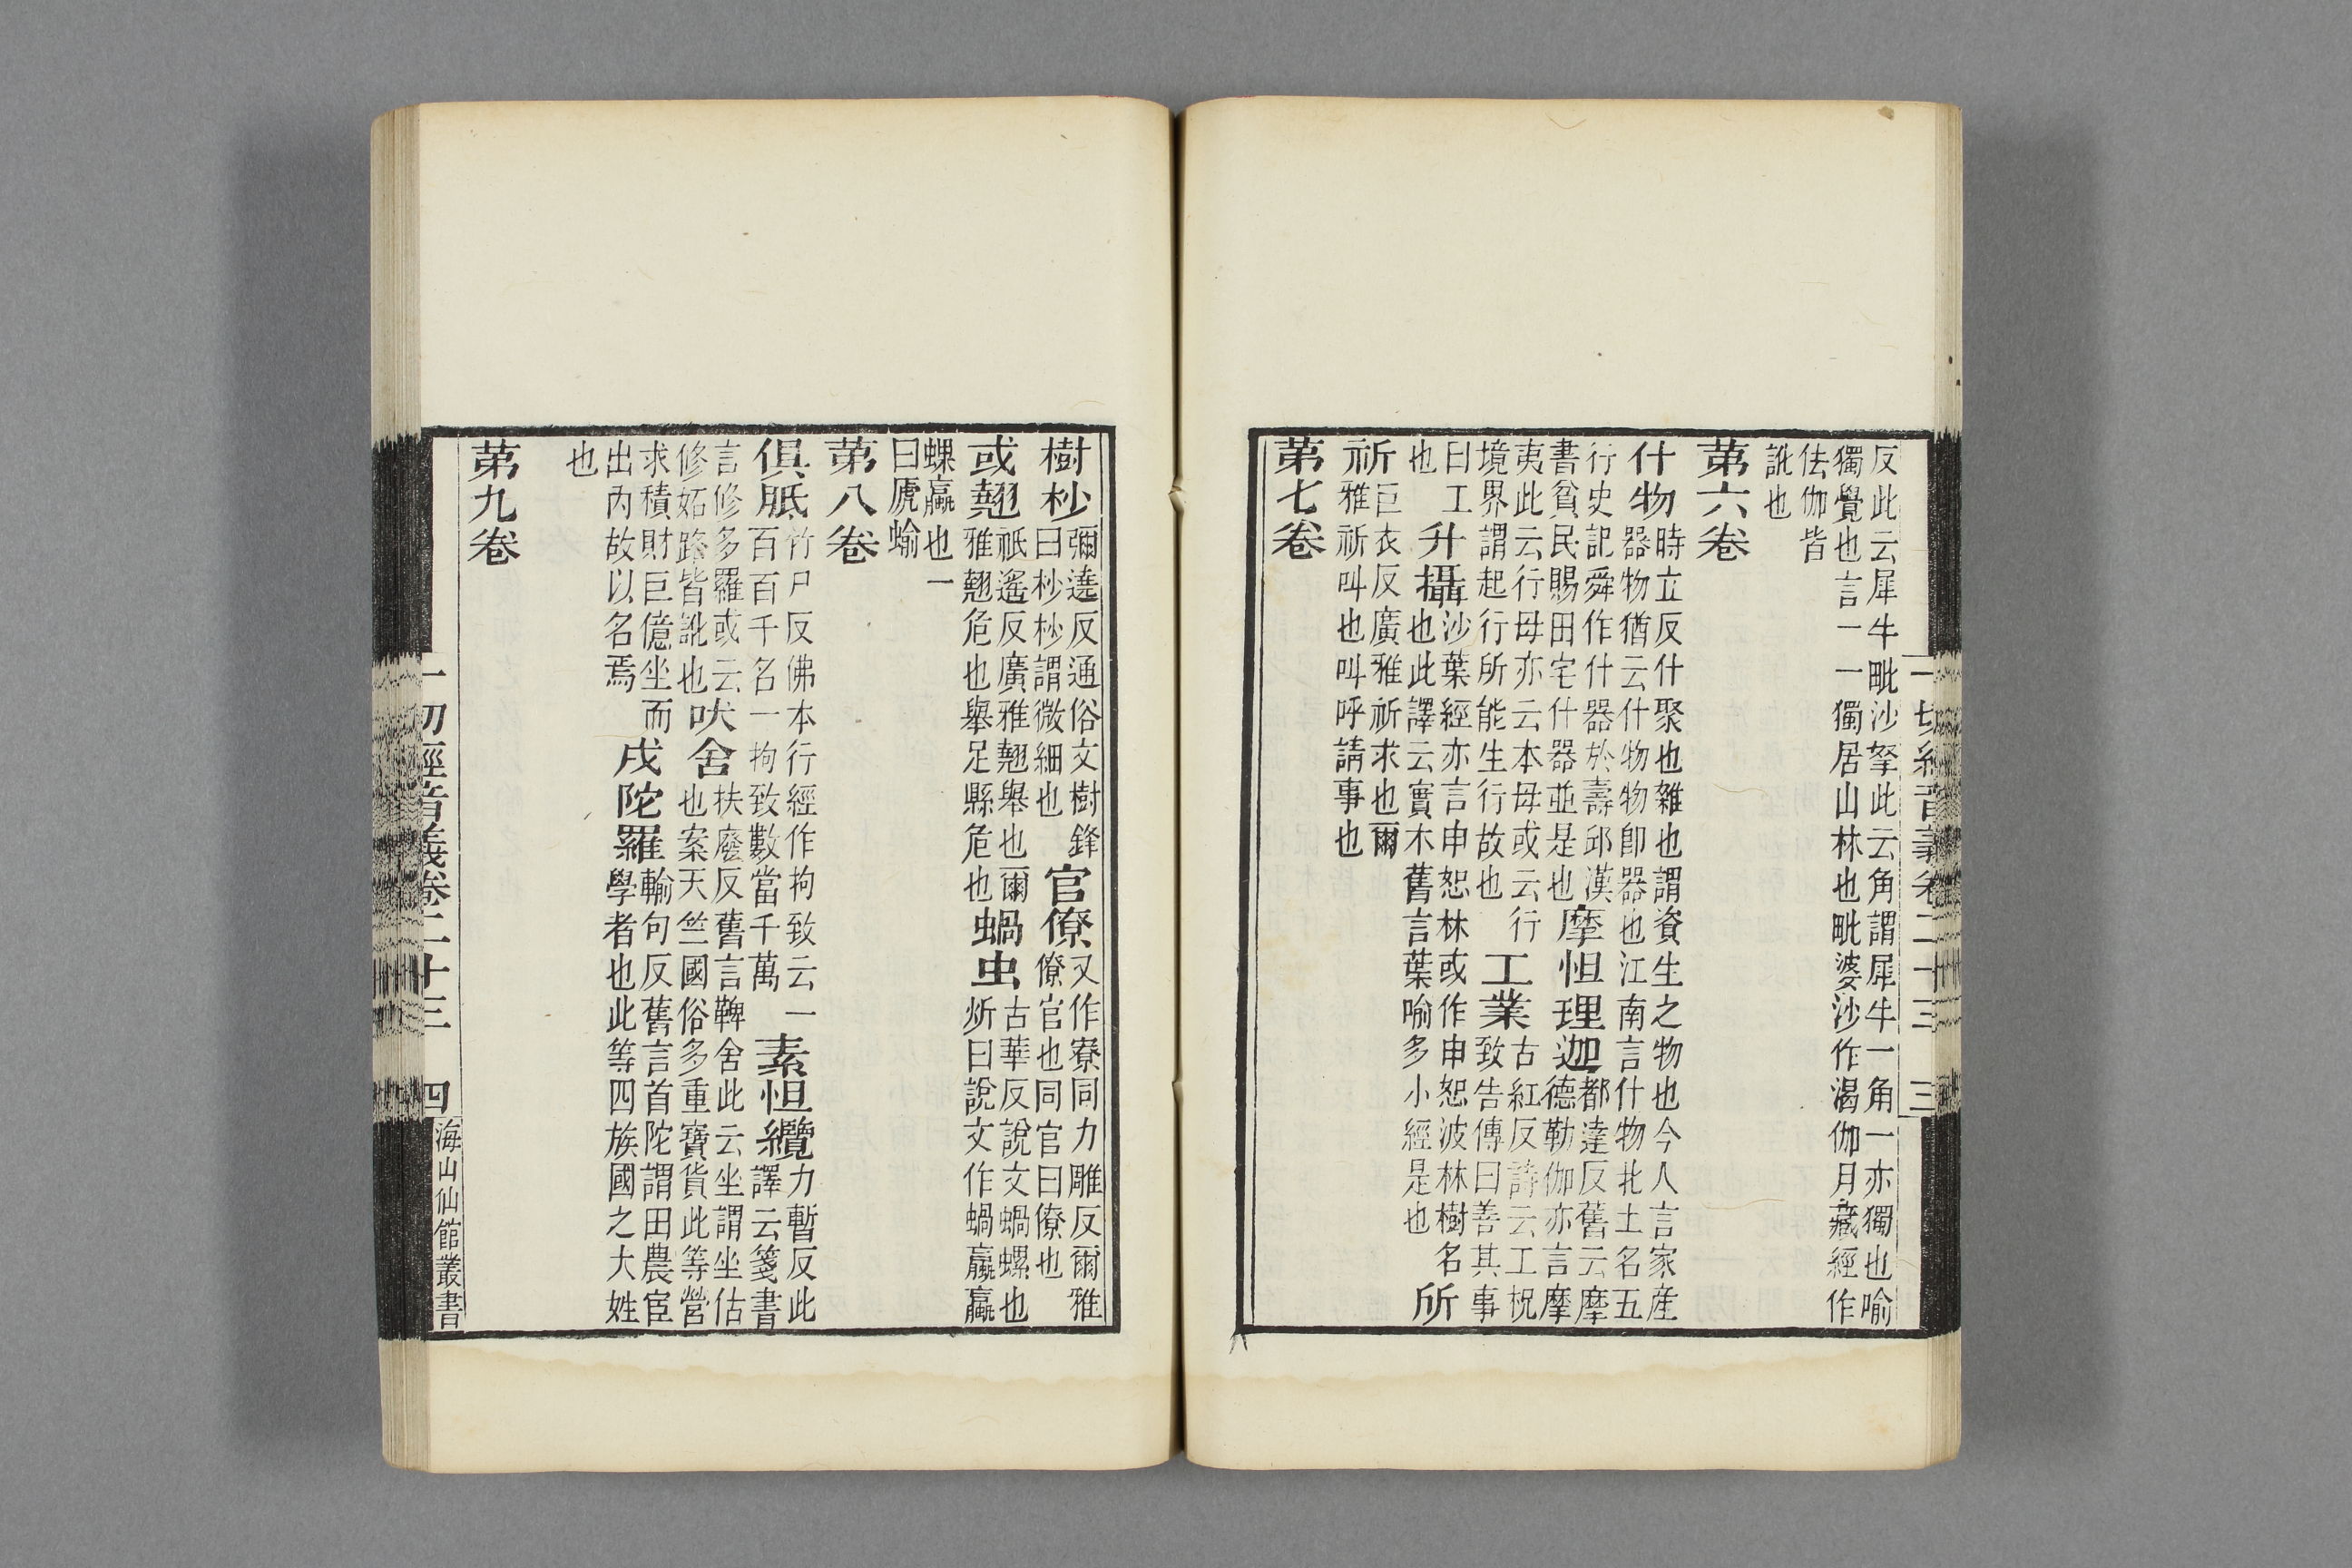 一切經音義卷二十三 三
反此云犀牛毗沙拏此云角謂犀牛一角一亦獨也喻
獨覺也言一一獨居山林也毗婆沙作渴伽月藏經作
佉伽皆
訛也
第六卷
什物時立反什聚也雜也謂資生之物也今人言家産
器物猶云什物物卽器也江南言什物北土名五
行史記舜作什器於壽邱漢
書貧民賜田宅什器並是也
摩怛理迦都達反舊云摩
德勒伽亦言摩
夷此云行毋亦云本毋或云行
境界謂起行所能生行故也
工業古紅反詩云工祝
致告傳曰善其事
曰工
也
升攝沙葉經亦言申恕林或作申恕波林樹名
也此譯云實木舊言葉喻多小經是也
所
祈巨衣反廣雅祈求也爾
雅祈叫也叫呼請事也
第七卷
樹杪彌遶反通俗文樹鋒
曰杪杪謂微細也
官僚又作寮同力雕反爾雅
僚官也同官曰僚也
或翹祇遙反廣雅翹舉也爾
雅翹危也舉足縣危也
蝸虫古華反說文蝸螺也
斨曰說文作蝸蠃蠃
蜾蠃也一
曰虒蝓
第八卷
俱胝竹尸反佛本行經作拘致云一
百百千名一拘致數當千萬
素怛纜力暫反此
譯云箋書
言修多羅或云
修妬路皆訛也
吠舍扶廢反舊言鞞舍此云坐謂坐估
也案天竺國俗多重寶貨此等營
求積財巨億坐而
出內故以名焉
戌陀羅輸句反舊言首陀謂田農宦
學者也此等四族國之大姓
也
第九卷
一切經音義卷二十三 四
海山仙館叢書